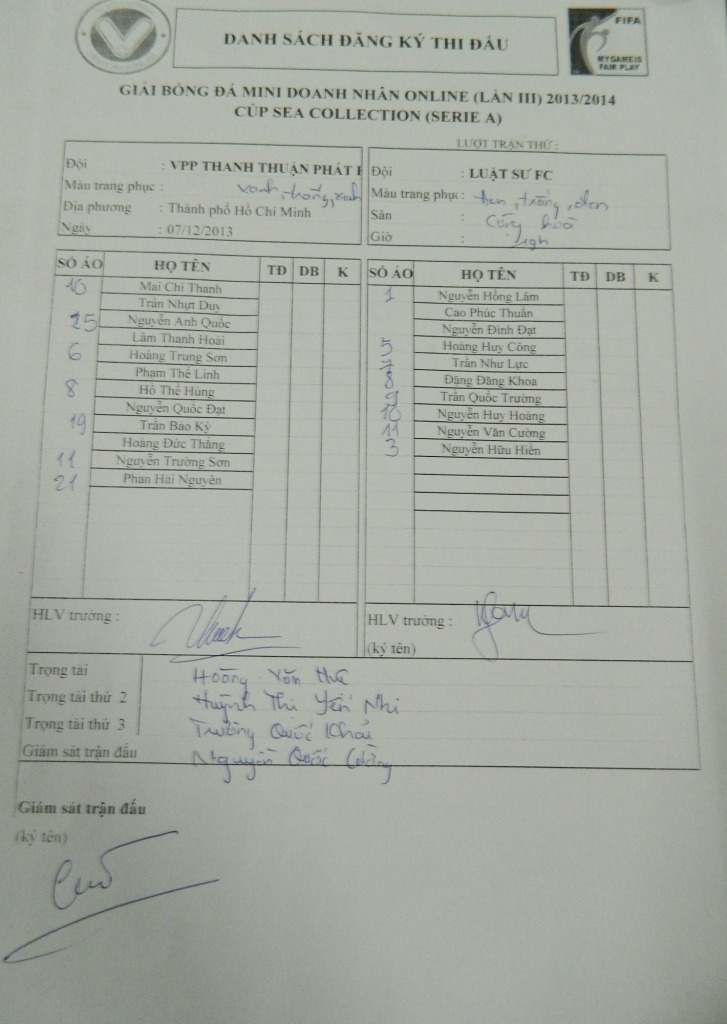 DANH SÁCH ĐĂNG KÝ THI ĐẤU
FIFA
MY GAME IS
FAIR PLAY
GIẢI BÓNG ĐÁ MINI DOANH NHÂN ONLINE (LẦN III) 2013/2014
CÚP SEA COLLECTION (SERIE A)
LƯỢT TRẬN THỨ :
Đội : VPP THANH THUẬN PHÁT
Màu trang phục : xanh, trắng, xanh
Địa phương : Thành phố Hồ Chí Minh
Ngày : 07/12/2013
Đội : LUẬT SƯ FC
Màu trang phục : đen, trắng, đen
Sân : Cộng hoà
Giờ :
SỐ ÁO HỌ TÊN TĐ DB K
10 Mai Chí Thanh
Trần Nhựt Duy
25 Nguyễn Anh Quốc
Lâm Thanh Hoài
6 Hoàng Trung Sơn
Phạm Thế Linh
8 Hồ Thế Hùng
Nguyễn Quốc Đạt
19 Trần Bảo Kỳ
Hoàng Đức Thắng
11 Nguyễn Trường Sơn
21 Phan Hải Nguyên
SỐ ÁO HỌ TÊN TĐ DB K
1 Nguyễn Hồng Lâm
Cao Phúc Thuần
Nguyễn Đình Đạt
5 Hoàng Huy Công
7 Trần Như Lực
8 Đặng Đăng Khoa
9 Trần Quốc Trường
10 Nguyễn Huy Hoàng
11 Nguyễn Văn Cường
3 Nguyễn Hữu Hiền
HLV trưởng :
HLV trưởng :
(ký tên)
Trọng tài Hoàng Văn
Trọng tài thứ 2 Huỳnh Thị Yến Nhi
Trọng tài thứ 3 Trường Quốc Khải
Giám sát trận đấu Nguyễn Quốc Cường
Giám sát trận đấu
(ký tên)